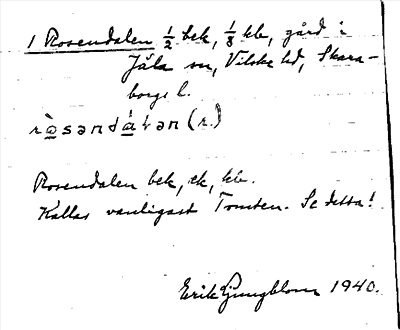 1 Rosendalen ½ bek, ⅛ kb, gård i
Jäla sn, Vilske hd, Skara-
borgs l.
(r.)
Rosendalen bek, ek, kb.
Kallas vanligast Tomten. Se detta!
Erik Ljungblom 1940.